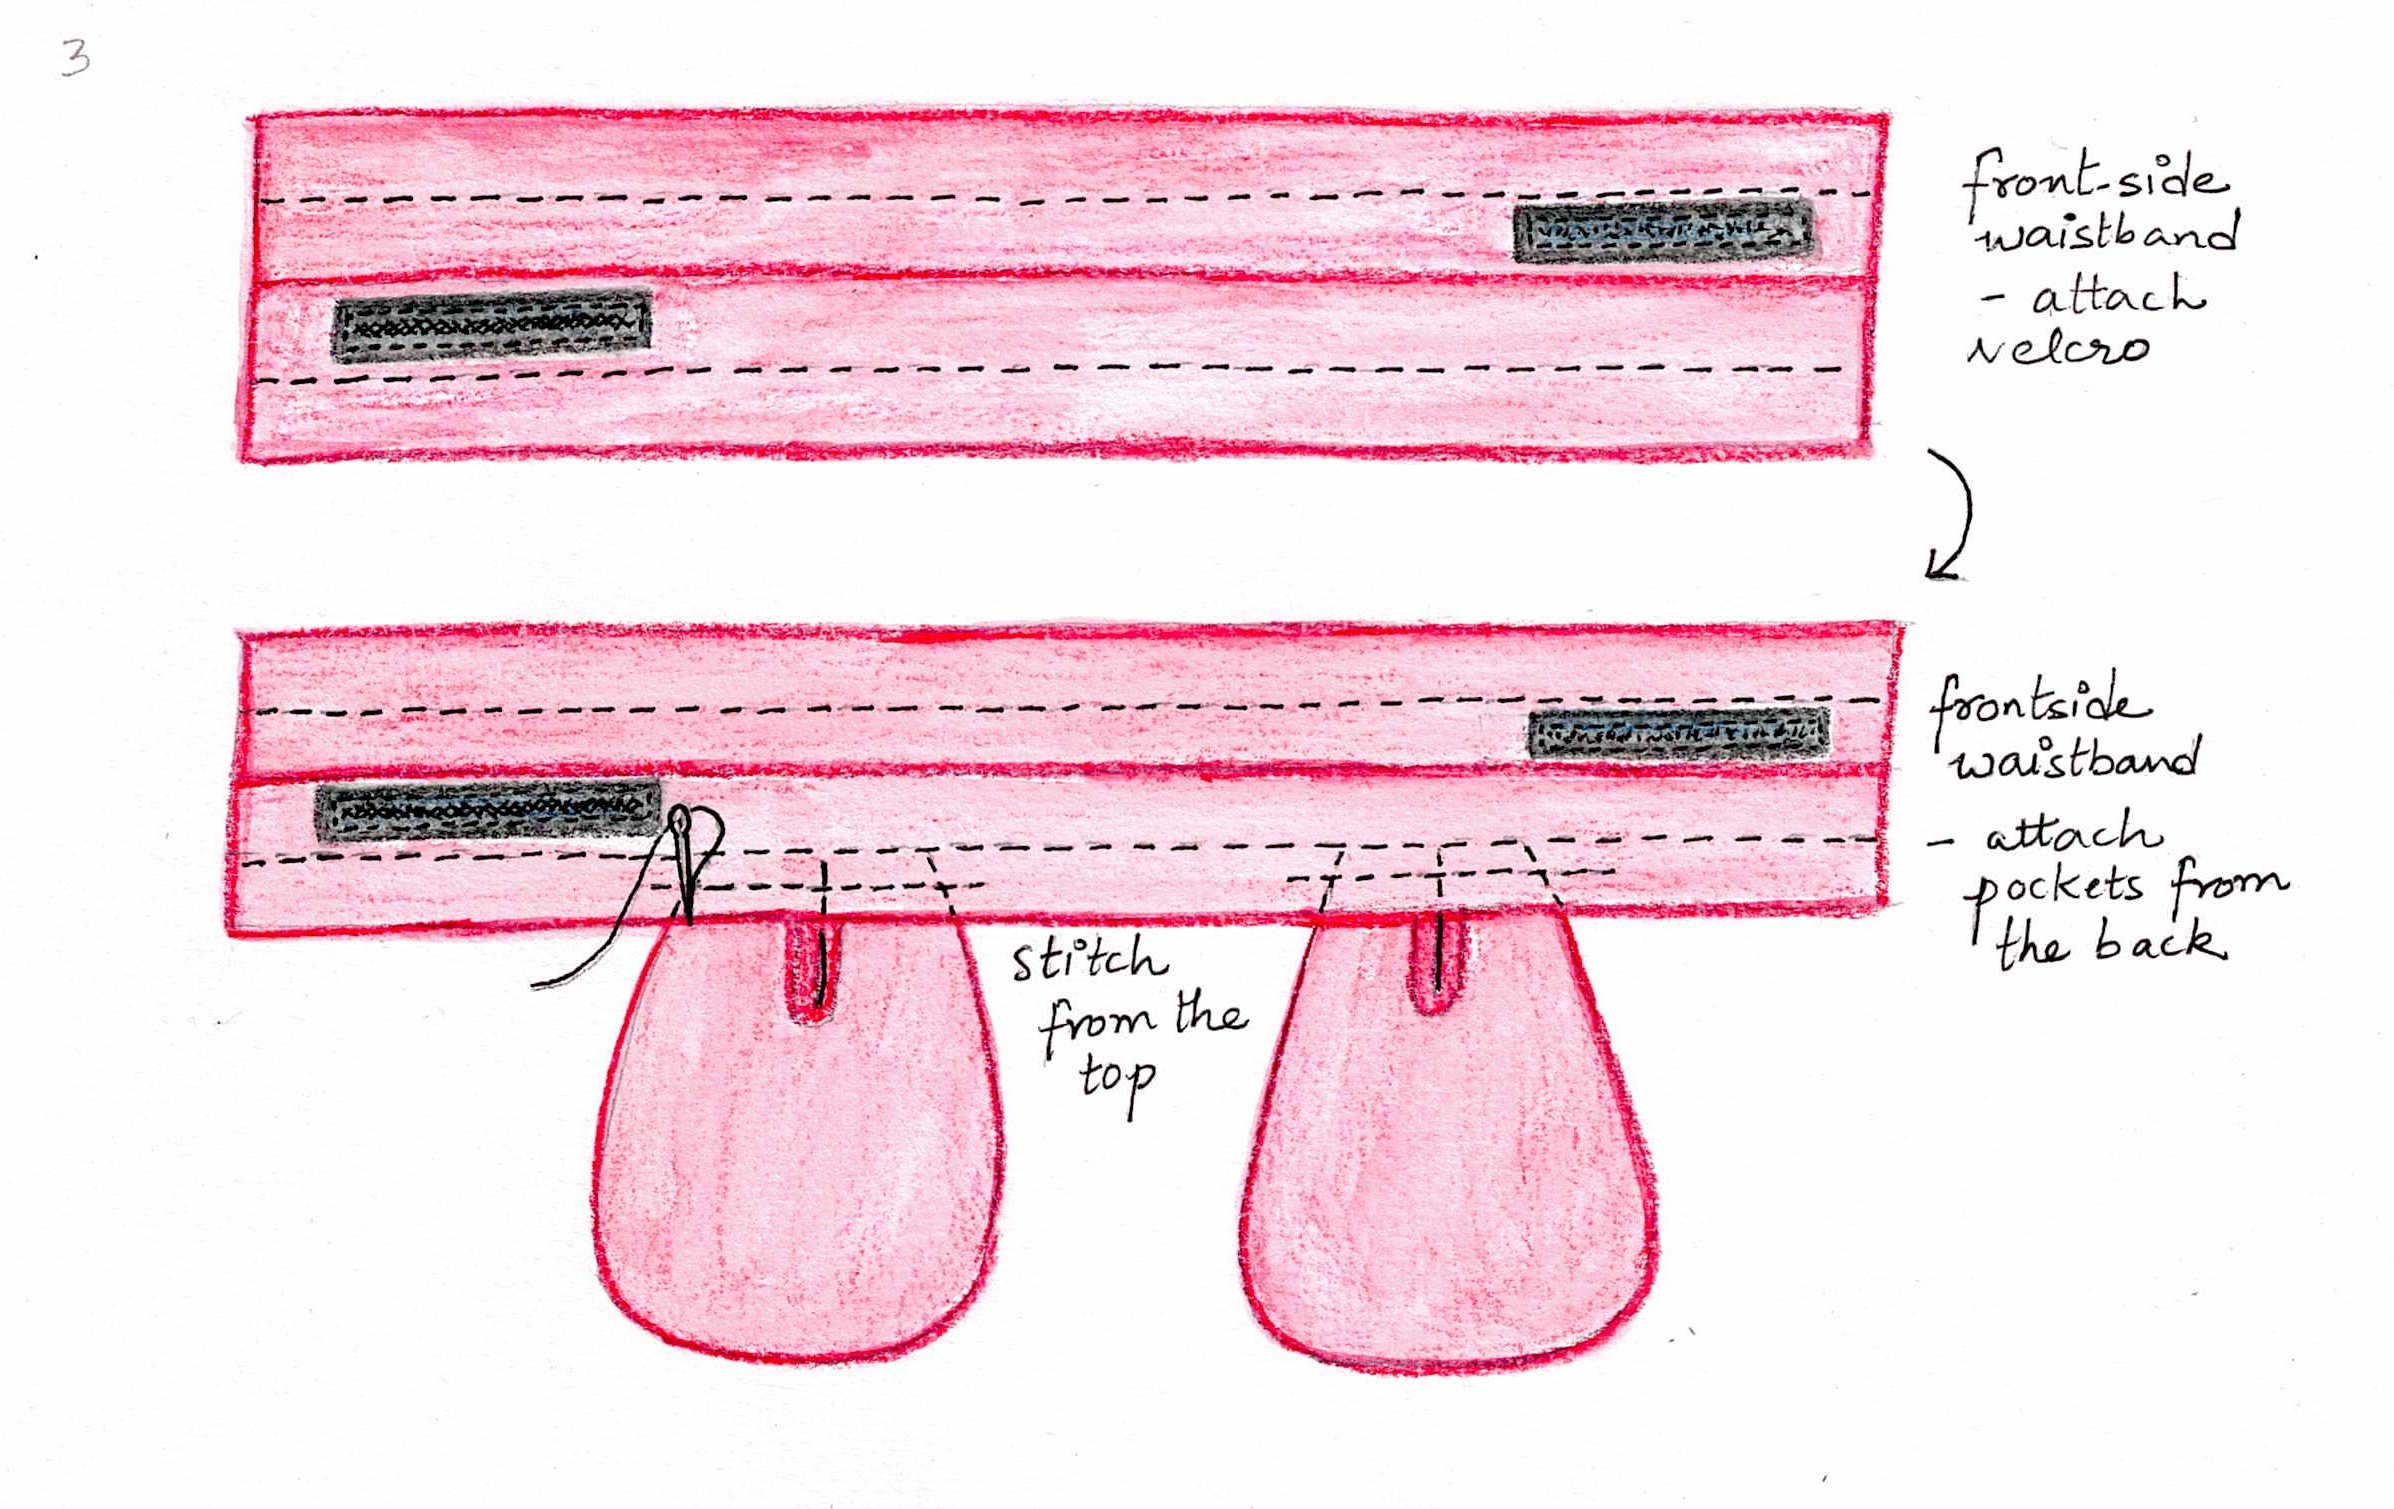 3
front-side
waistband
- attach
velcro
frontside
waistband
- attach
pockets from
the back
stitch
from the
top